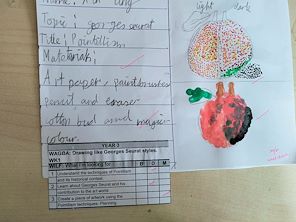 Topic: georges seurat
Title: Pointillism
Materials:
Art paper, paintbrushes
pencil and eraser
cotton bud and
colour.
light dark
YEAR 3
WAGBA: Drawing like Georges Seurat styles.
WK1
WILF: What I'm looking for
1 Understand the techniques of Pointillism
and its historical context.
2 Learn about Georges Seurat and his
contribution to the art world
3 Create a piece of artwork using the
Pointillism techniques. Planning